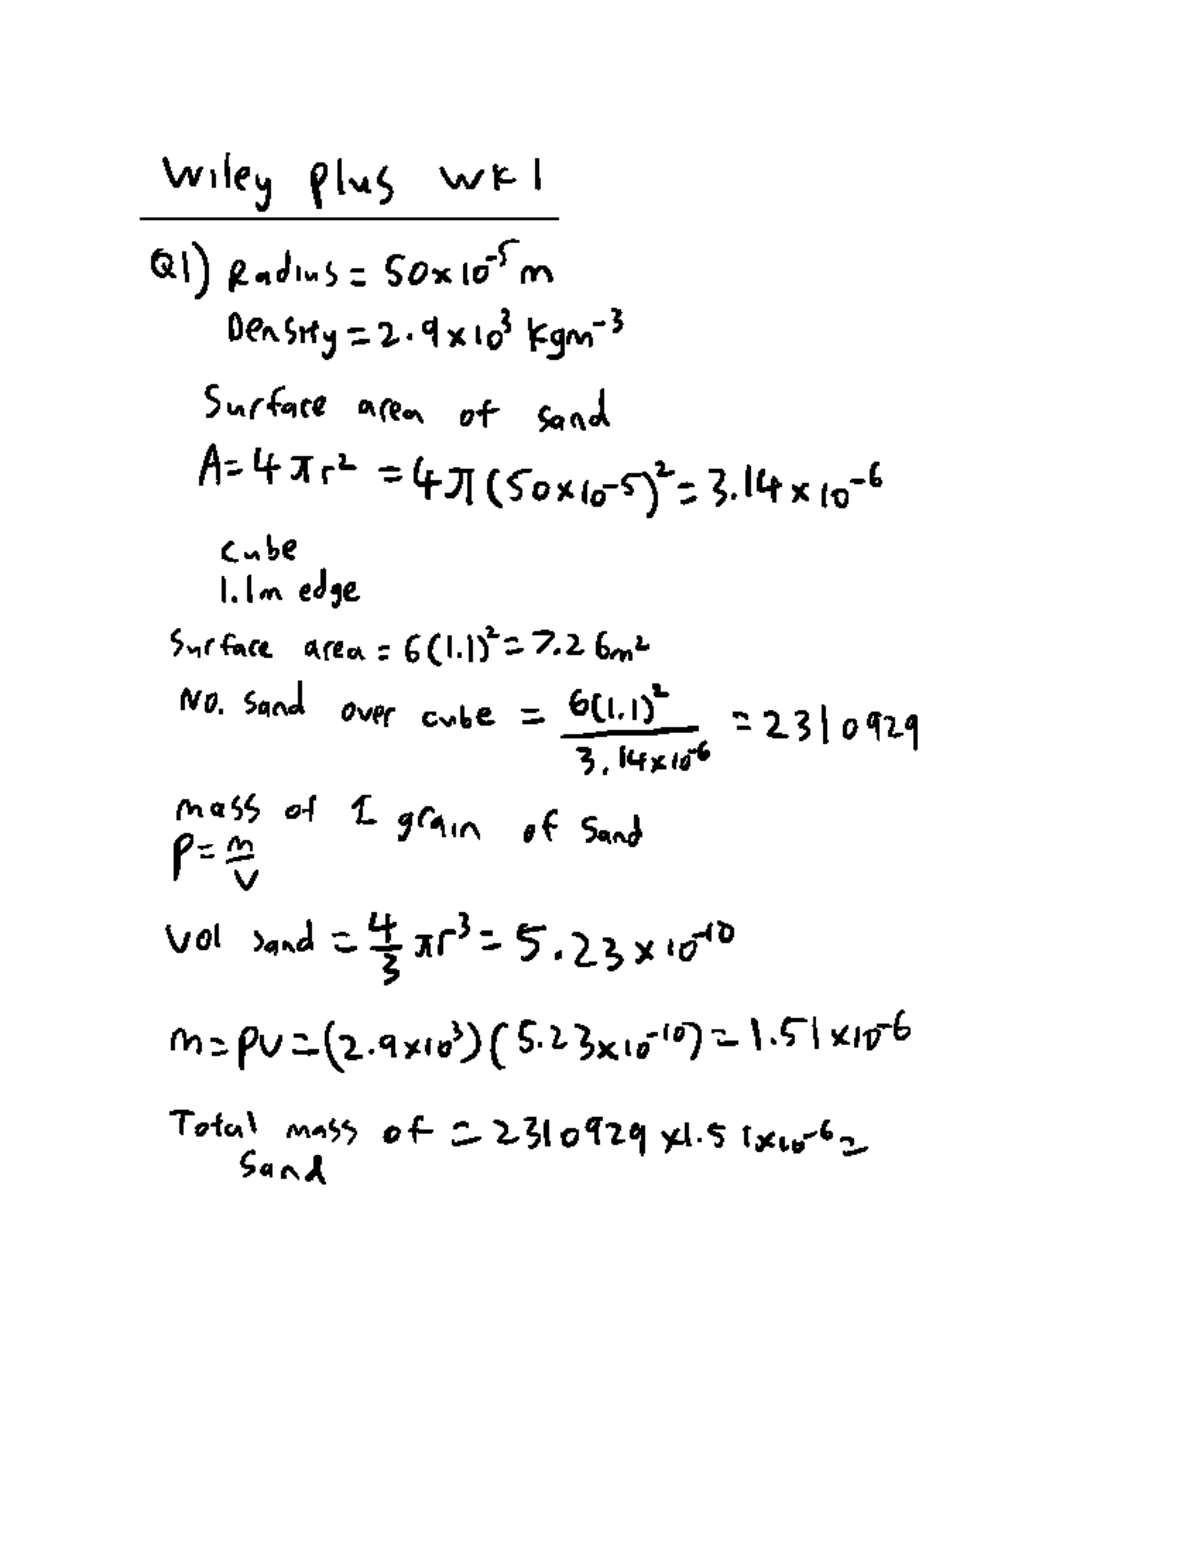 Wiley plus wk 1
Q1) Radius = 50×10⁻⁵ m
Density = 2.9×10³ kgm⁻³
Surface area of sand
A = 4πr² = 4π(50×10⁻⁵)² = 3.14×10⁻⁶
cube
1.1m edge
Surface area = 6(1.1)² = 7.26m²
NO. sand over cube = 6(1.1)² / 3.14×10⁻⁶ = 2310929
mass of 1 grain of sand
P = m/V
Vol sand = 4/3 πr³ = 5.23×10⁻¹⁰
m = PV = (2.9×10³)(5.23×10⁻¹⁰) = 1.51×10⁻⁶
Total mass of = 2310929 ×1.51×10⁻⁶ =
sand